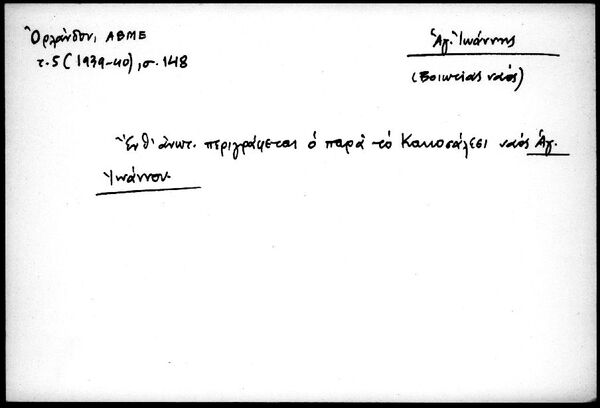 Ὀρλάνδου, ΑΒΜΕ
τ. 5 (1939-40), σ. 148
Ἁγ. Ἰωάννης
(Βοιωτίας ναός)
Ἔνθ' ἀνωτ. περιγράφεται ὁ παρὰ τὸ Κακοσάλεσι ναός Ἁγ.
Ἰωάννου.